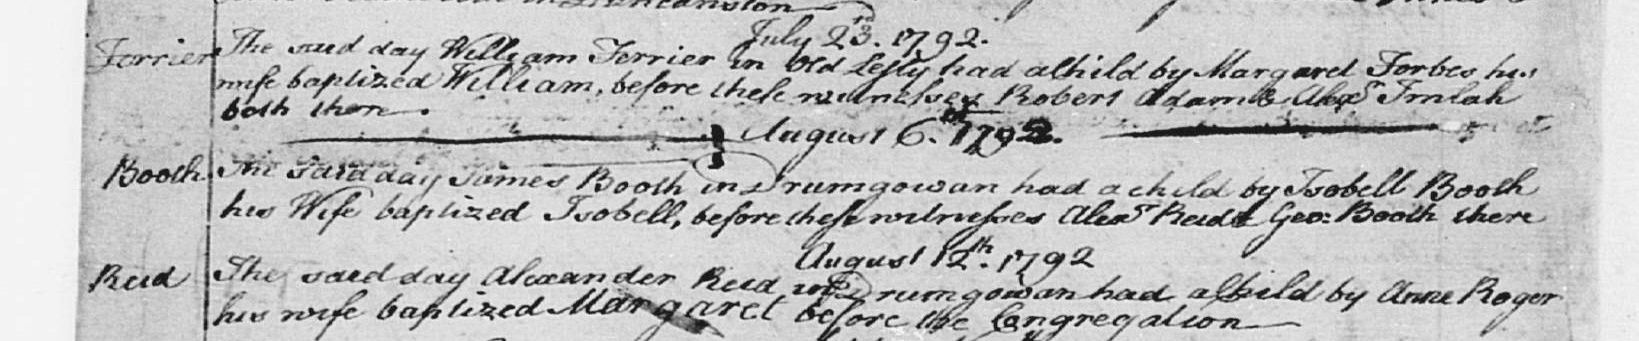 July 23rd. 1792.
Ferrier The said day William Ferrier in Old Lesly had a Child by Margaret Forbes his
wife baptized William, before these witnesses Robert Adam & Alexr. Imlah
both there.
August 6. 1792.
Booth The said day James Booth in Drumgowan had a child by Isobell Booth
his Wife baptized Isobell, before these witnesses Alexr. Reid & Geo: Booth there
August 12th. 1792
Reid The said day Alexander Reid in Drumgowan had a Child by Anne Roger
his wife baptized Margaret before the Congregation